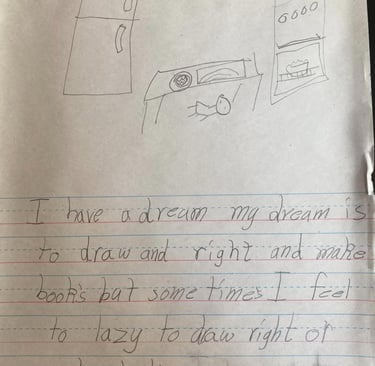 I have a dream my dream is
to draw and right and make
book's but some times I feel
to lazy to daw right or